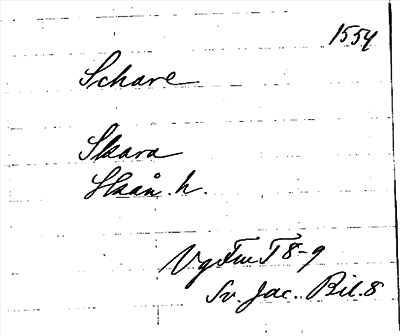 1554
Schare
Skara
Skån. h.
VgFmT 8-9
Sv. Jac. Bil. 8